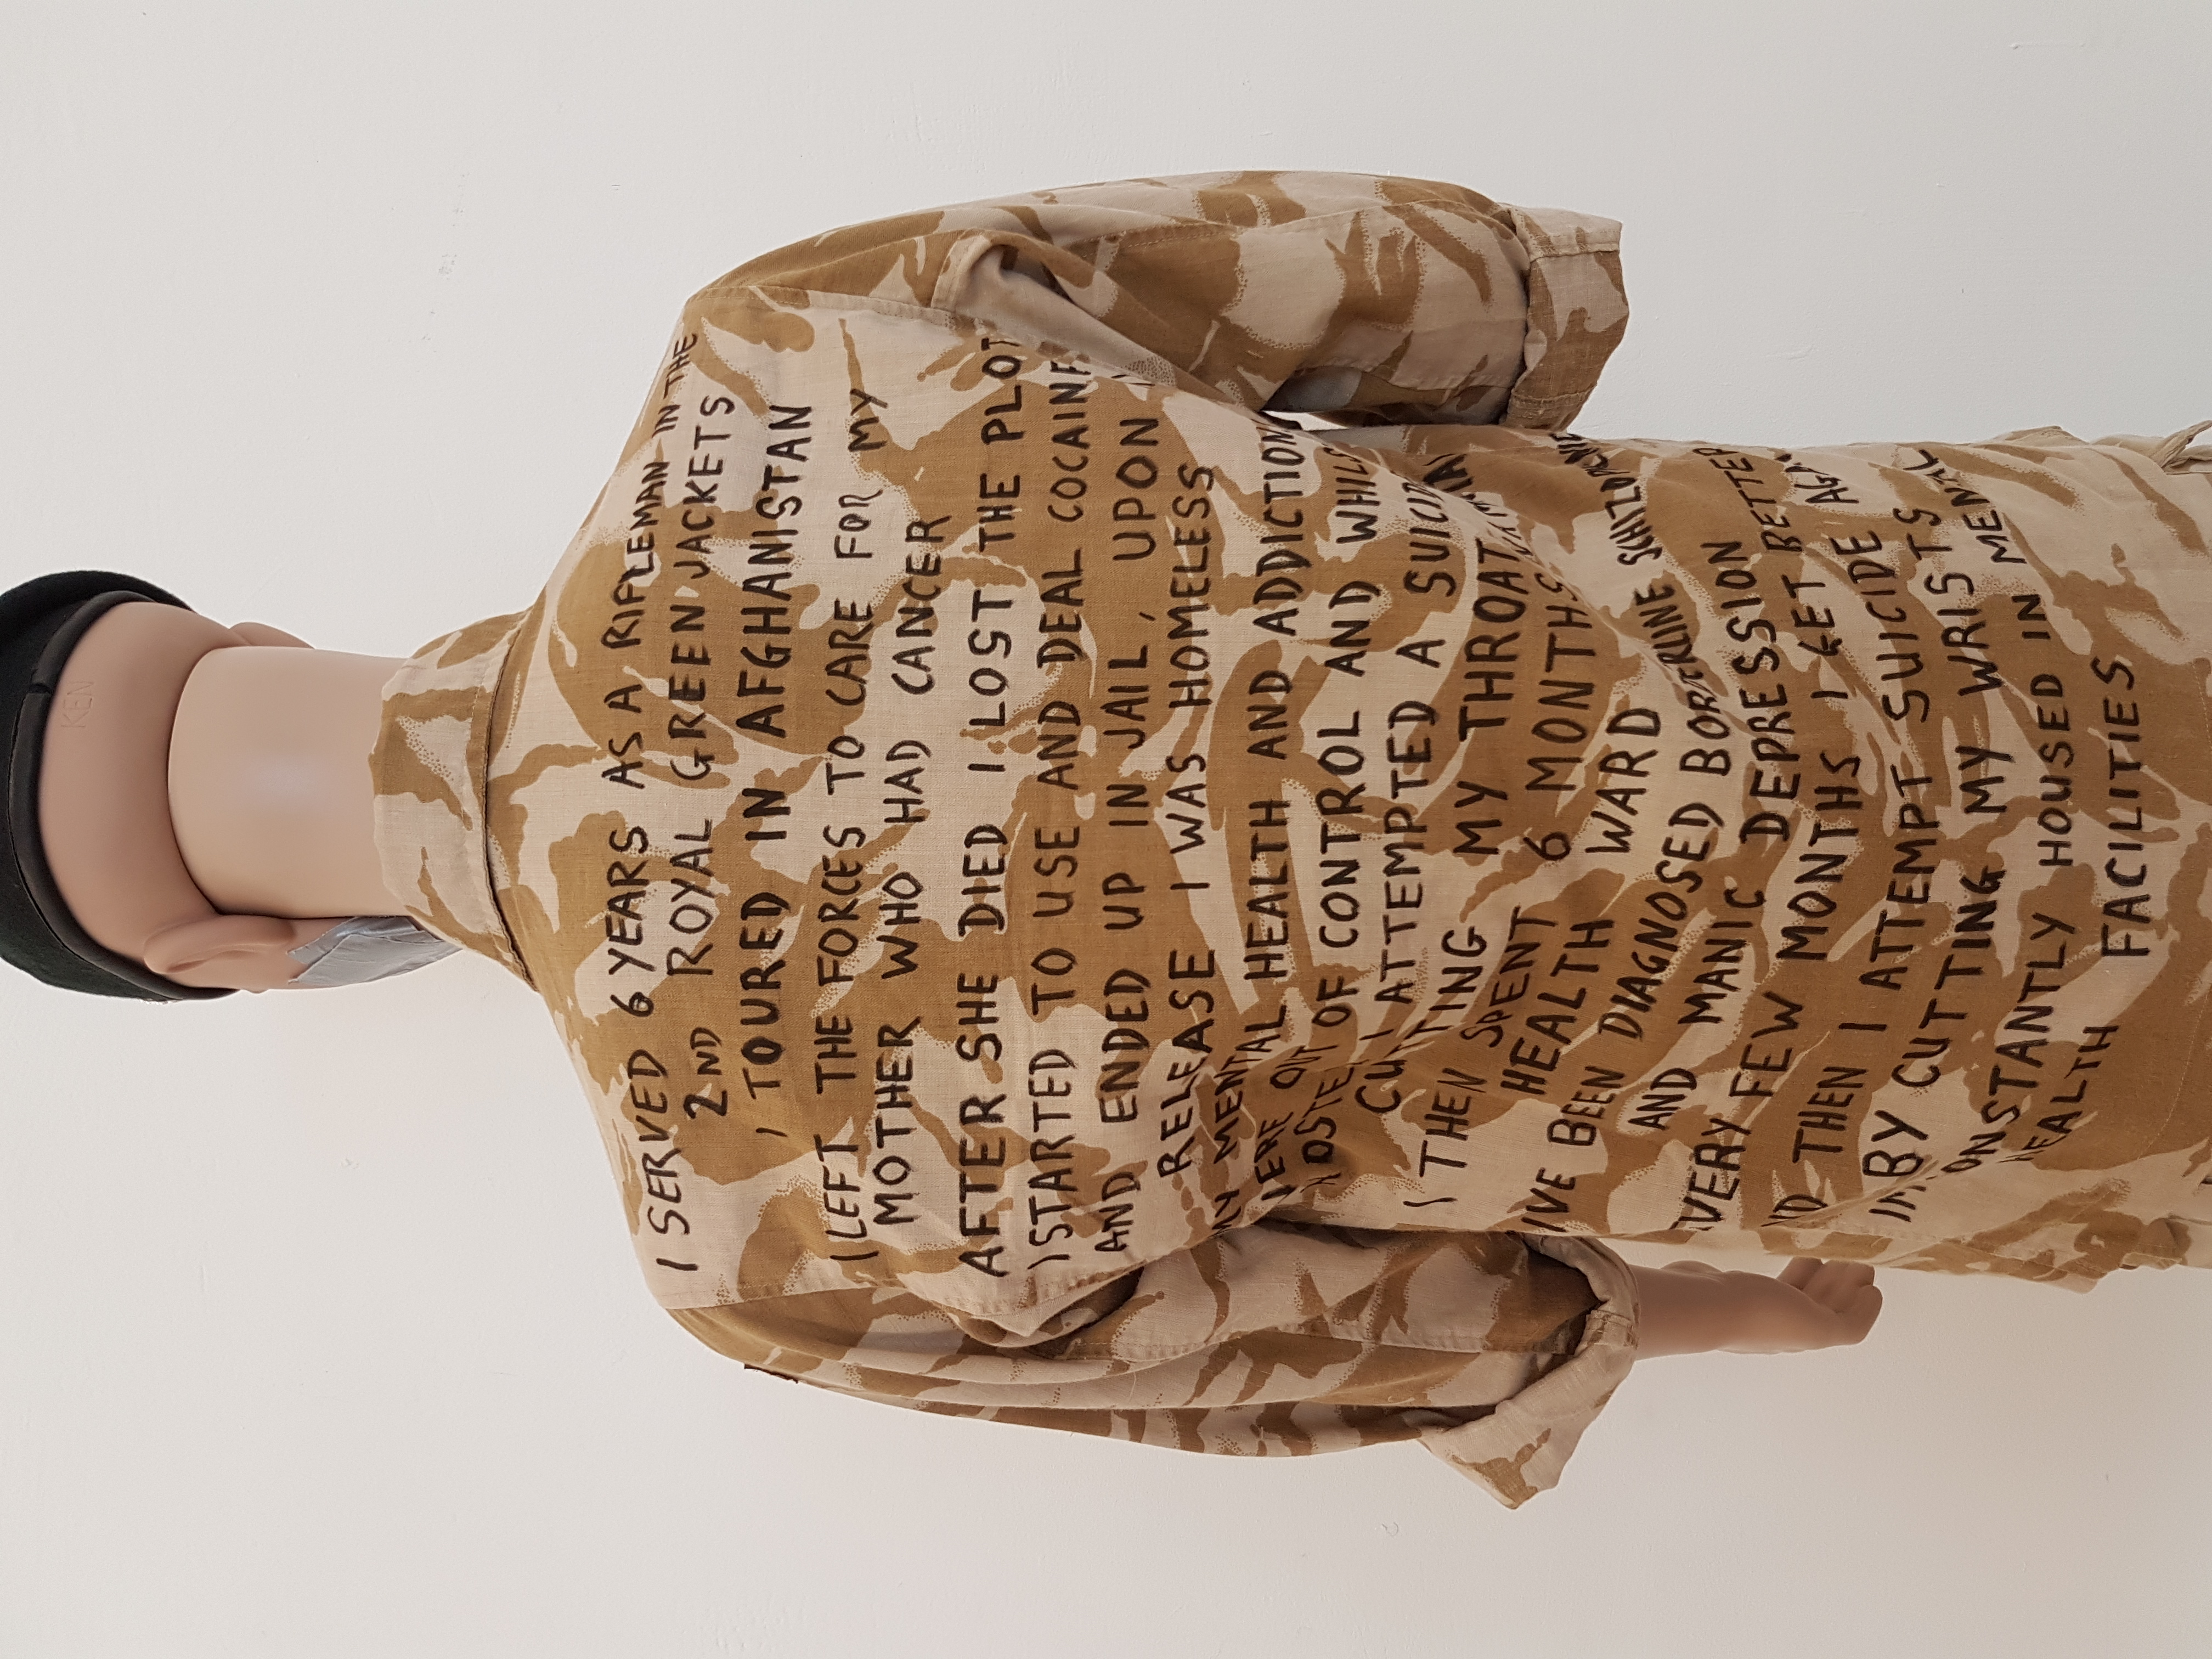 KEN
I SERVED 6 YEARS AS A RIFLEMAN IN THE
2ND ROYAL GREEN JACKETS
I TOURED IN AFGHANISTAN
I LEFT THE FORCES TO CARE FOR MY
MOTHER WHO HAD CANCER
AFTER SHE DIED I LOST THE PLOT
I STARTED TO USE AND DEAL COCAINE
AND ENDED UP IN JAIL, UPON
RELEASE I WAS HOMELESS
MY MENTAL HEALTH AND ADDICTION
WERE OUT OF CONTROL AND WHILS
HOSTEL I ATTEMPTED A SUICID
CUTTING MY THROAT
I THEN SPENT 6 MONTHS
HEALTH WARD
IVE BEEN DIAGNOSED BORDERLINE SCHIZOPHENIC
AND MANIC DEPRESSION
EVERY FEW MONTHS I GET BETTER
ND THEN I ATTEMPT SUICIDE AGA
BY CUTTING MY WRISTS
IM ONSTANTLY HOUSED IN MENTAL
HEALTH FACILITIES